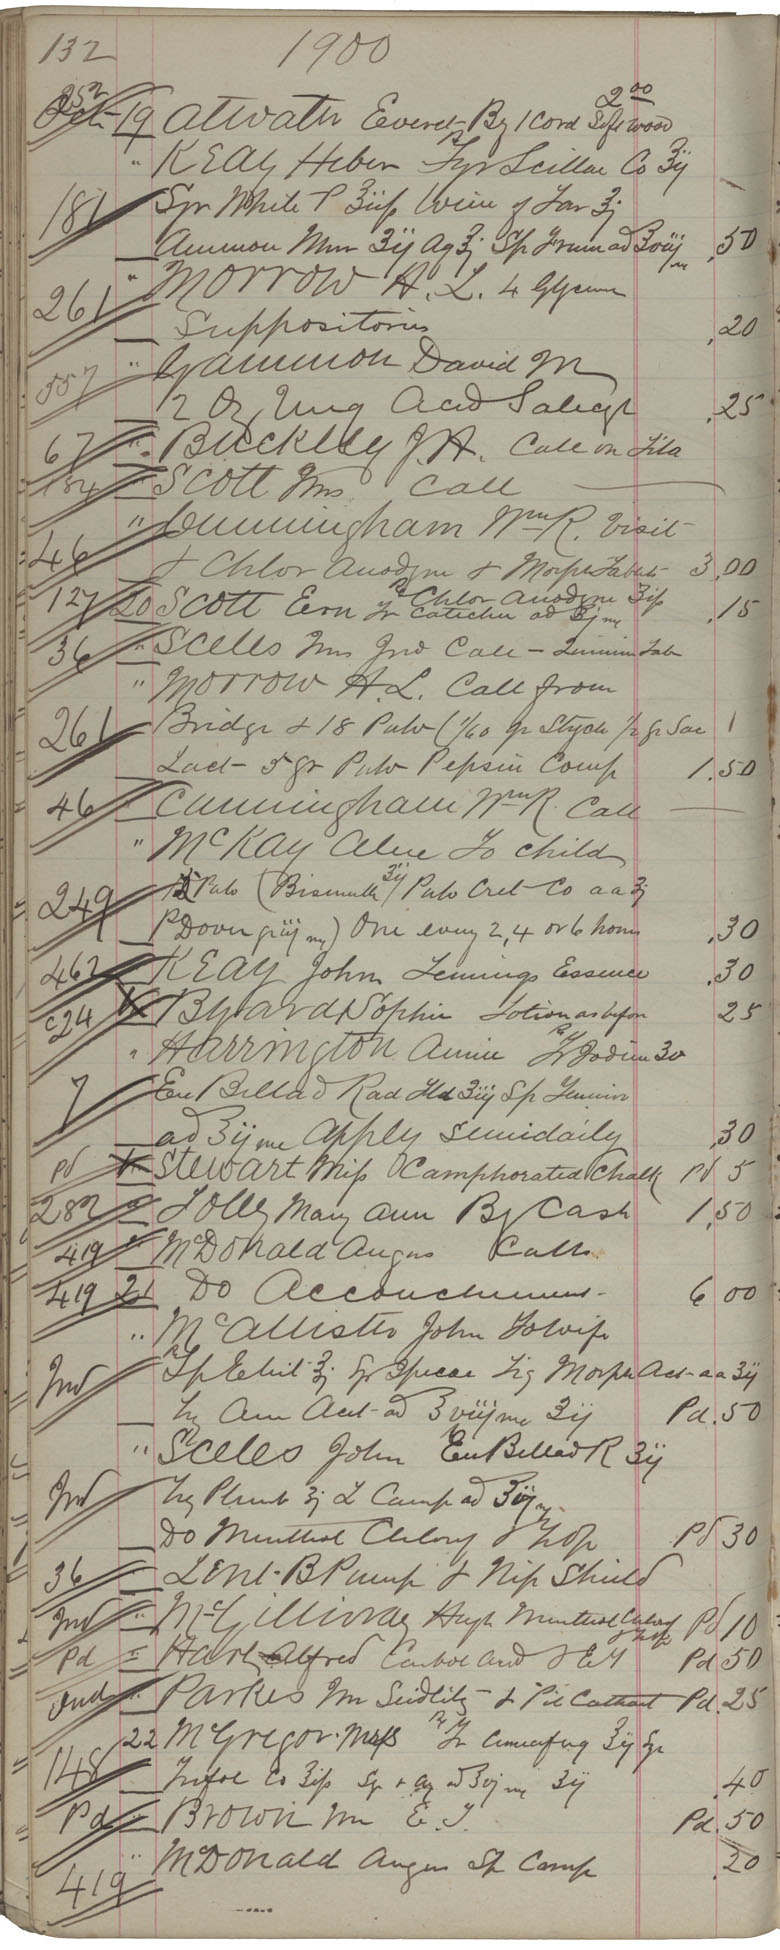 132 1900
252 Oct 19 Atwater Everet By 1 Cord Softwood 2.00
" KEAY Heber Syr Scillae Co ℨij
181 Syr White P ℨiiss Wine of Tar ℨj
Ammon Mur ℨij Aq ℨj Sp Frum ad ℥viij .50
261 " MORROW A. L. 4 Glycerin
Suppositories .20
557 " Gammon David M
2 Oz Ung Acid Salicyl .25
67 " BUCKLEY J. A. Call on Lila
184 " SCOTT Mrs Call
" Cunningham Wm R. Visit
46 & Chlor Anodyne & Morph Tablets 3.00
127 20 Scott Ern Chlor Anodyne ℨiss
Tr Catechu ad ℥j .15
36 " Sceles Mrs Jno Call -
" Morrow A. L. Call from
261 Bridge & 18 Pulv (1/60 gr Strych 1/2 gr Sac
Lact 5 gr Pulv Pepsin Comp 1.50
46 " Cunningham Wm R. Call
" McKAY Alex To child
249 Pulv (Bismuth ℨij Pulv Cret Co aa ℨj
P Dover gr iij) One every 2, 4 or 6 hours .30
462 KEAY John Jennings Essence .30
624 Byard Sophie Lotion as before 25
" Harrington Annie Tr Iodine
7 Ex Bellad Rad Fld ℨiij Sp
ad ℥ij Apply semidaily .30
Pd Stewart Miss Camphorated Chalk Pd 5
282 " Jolly Mary Ann By Cash 1.50
419 " McDonald Angus Call
419 21 Do Accouchement 6 00
" McAllister John To Wife
Ind Sp Ethit ℨj Syr Ipecac Liq Morph Act aa ℨij
Liq Am Act ad ℥viij ℨij Pd .50
" Sceles John Ex Bellad R ℨij
Ind Liq Plumb ℨj L Camp ad ℥iij
Do Menthol Chlory & Pd 30
36 " Lent B Pump & Nip Shield
Ind " McGillivray Hugh Menthol Chlory Pd 10
Pd " Hart Alfred Carbol Acid & Pd 50
Ind " Parkes Wm Seidlitz & Pil Cathart Pd .25
22 McGregor Miss Tr Cimicifug ℨij Syr
148 Trifol Co ℥iss Syr & Aq ad ℥vj ℨij .40
Pd " Brown Wm E. J. Pd .50
419 " McDonald Angus Sp Camp .20